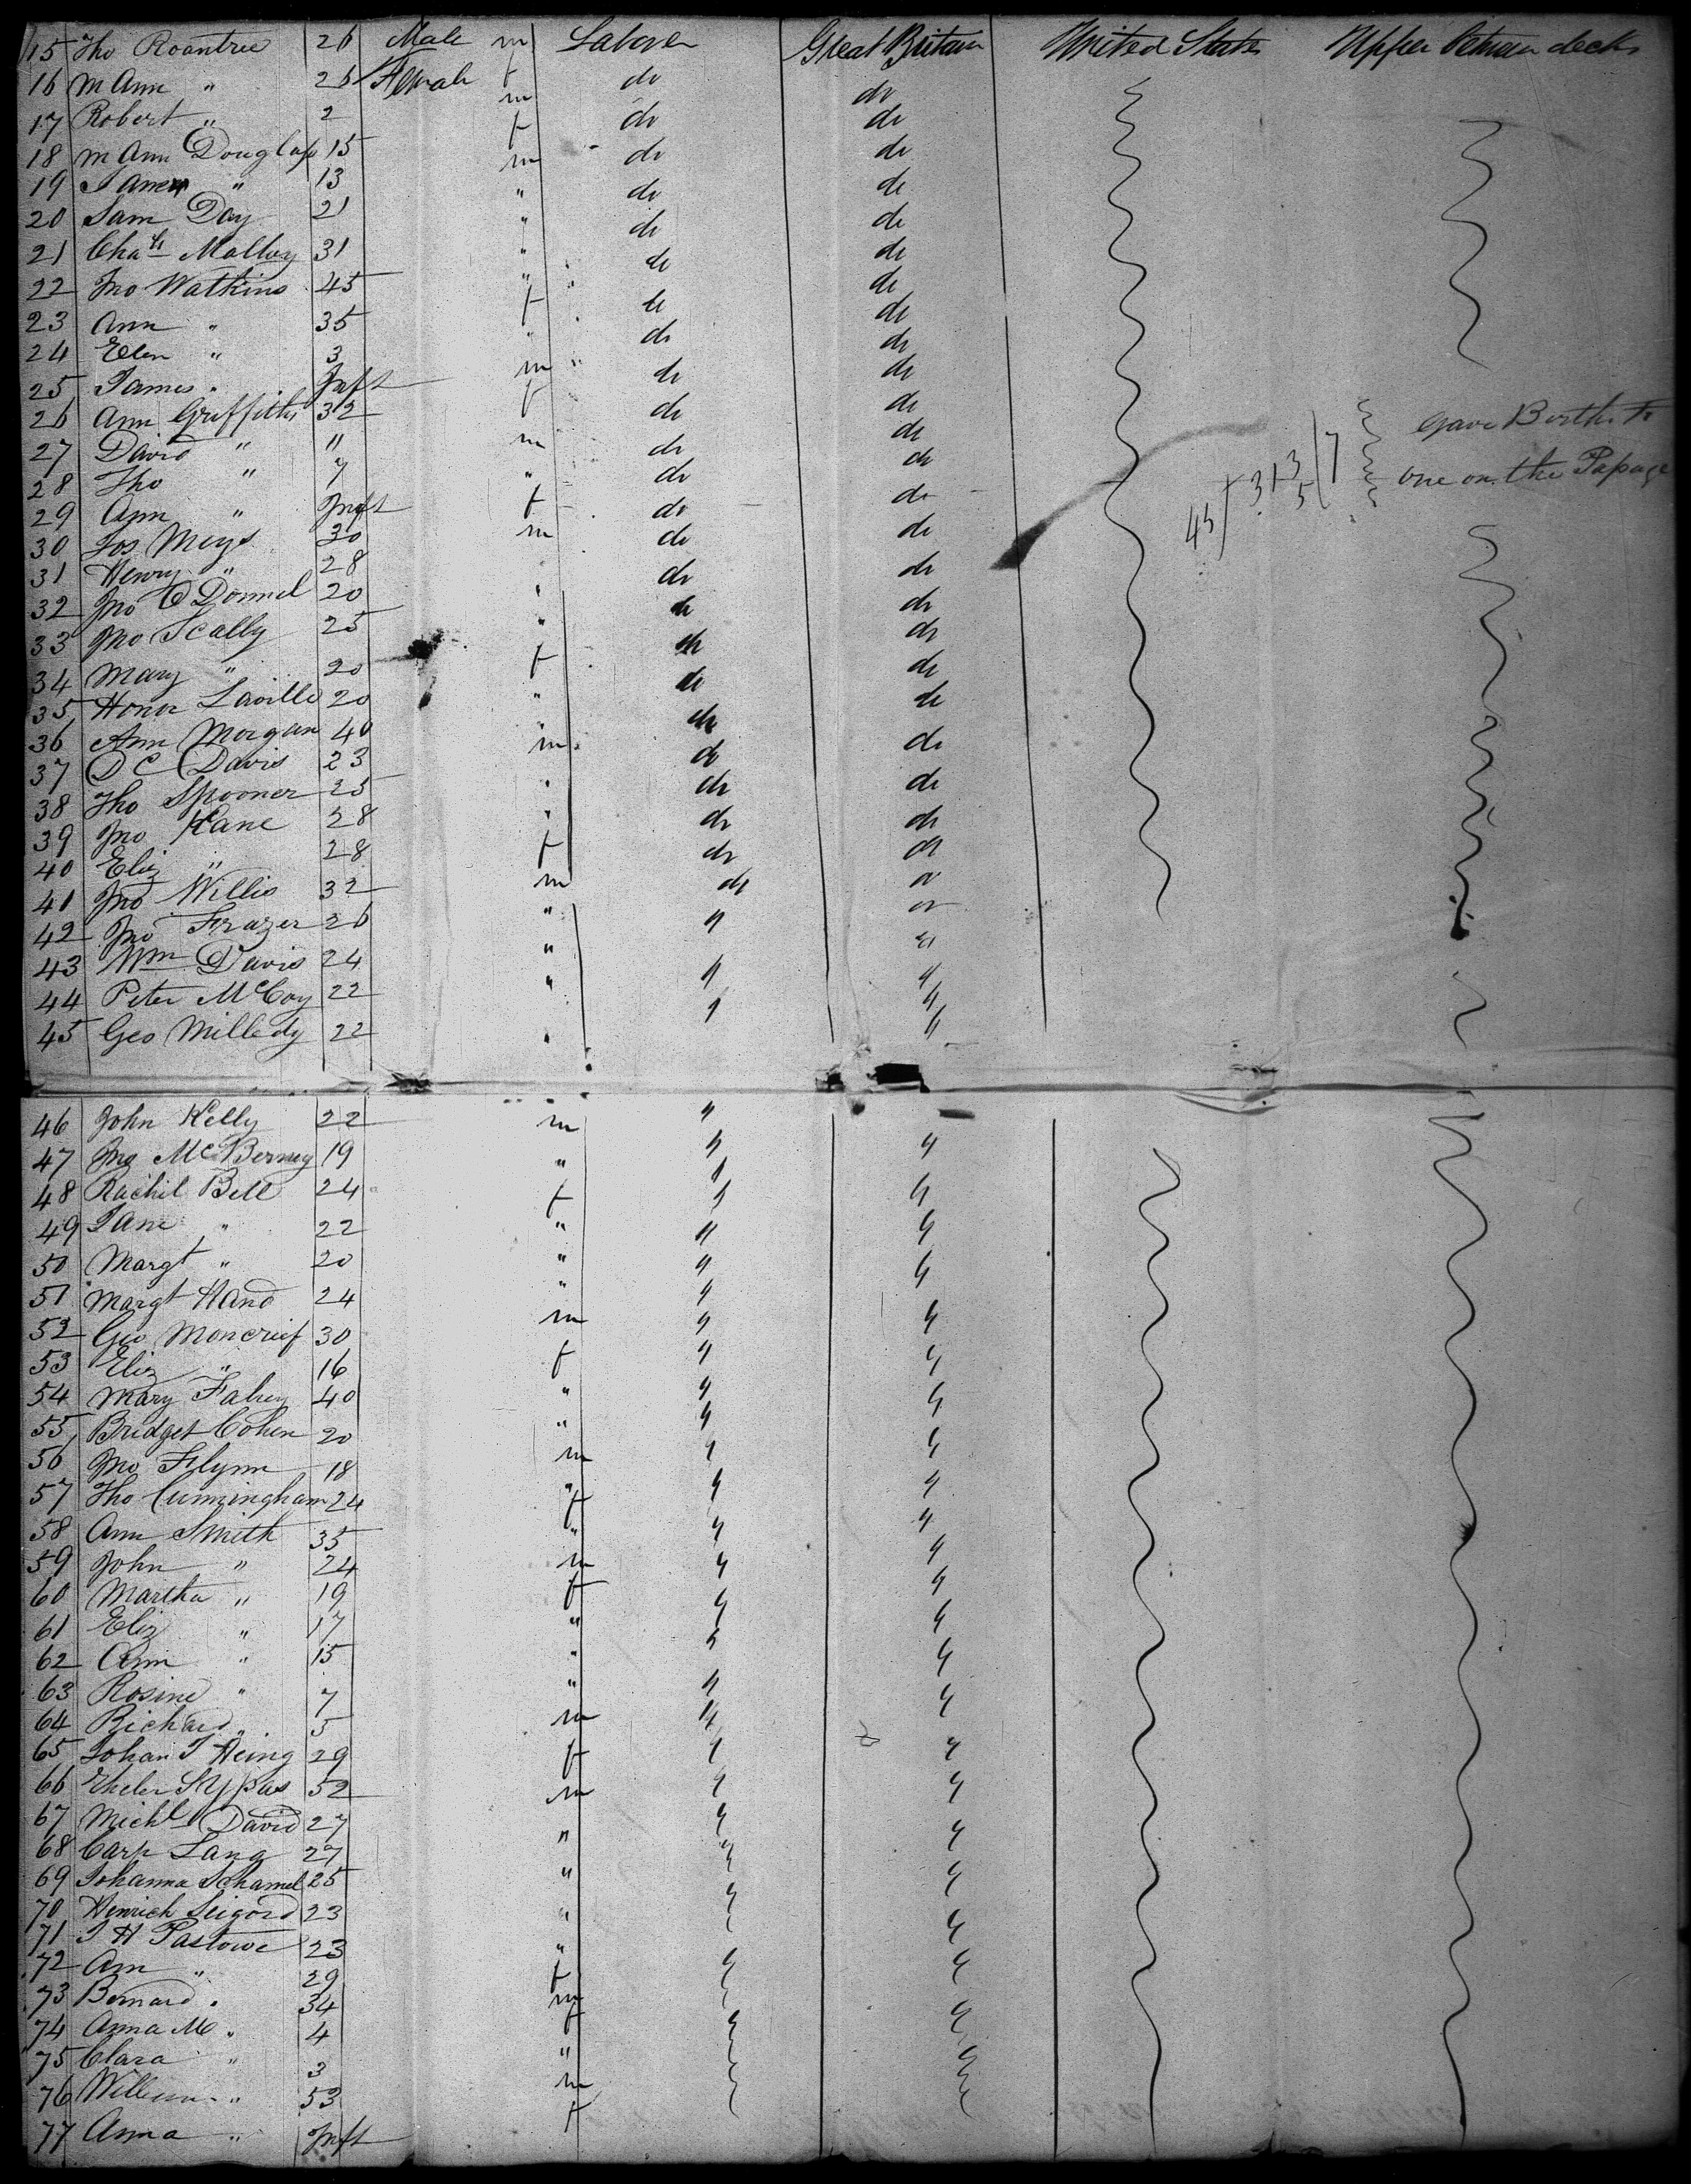 15 Tho Roantree 26 Male m Laborer Great Britain United States Upper Between decks
16 M Ann " 26 Female f do do
17 Robert " 2 m do do
18 M Ann Douglass 15 f do do
19 James " 13 m do do
20 Sam Day 21 " do do
21 Chas Malloy 31 " do do
22 Jno Watkins 45 " do do
23 Ann " 35 f do do
24 Ellen " 3 " do do
25 James " Inft m do do
26 Ann Griffiths 32 f do do gave Birth to
27 David " 11 m do do
28 Tho " 7 " do do one on the Passage
29 Ann " Inft f do do
30 Jos Meys 30 m do do
31 Henry " 28 do do
32 Jno O Donnel 20 " do do
33 Jno Scally 25 " do do
34 Mary " 20 f do do
35 Honor Laville 20 " do do
36 Ann Morgan 40 " do do
37 D C Davis 23 m do do
38 Tho Spooner 25 " do do
39 Jno Kane 28 " do do
40 Eliz " 28 f do do
41 Jno Willis 32 m do do
42 Jno Frazer 26 " " "
43 Wm Davis 24 " " "
44 Peter McCoy 22 " " "
45 Geo Milledy 22 " "
46 John Kelly 22 m "
47 Jno McBerney 19 " " "
48 Rachel Bell 24 f " "
49 Jane " 22 " " "
50 Margt " 20 " " "
51 Margt Hand 24 " "
52 Geo Moncrief 30 m " "
53 Eliz " 16 f " "
54 Mary Fahey 40 " " "
55 Bridget Cohen 20 " " "
56 Jno Flynn 18 m " "
57 Tho Cunningham 24 " " "
58 Ann Smith 35 f " "
59 John " 24 m " "
60 Martha " 19 f " "
61 Eliz " 17 " " "
62 Ann " 15 " " "
63 Rosine " 7 " " "
64 Richard " 5 m "
65 Johan T Heing 29 f " "
66 52 m " "
67 Michl David 27 " "
68 Carp Lang 27 " " "
69 Johanna Schamel 25 " " "
70 Heinrich Seigord 23 " "
71 J H Pastowe 23 " "
72 Ann " 29 f
73 Bernard " 34 m
74 Anna M " 4 f
75 Clara " 3 "
76 William " 53 m
77 Anna " Inft f